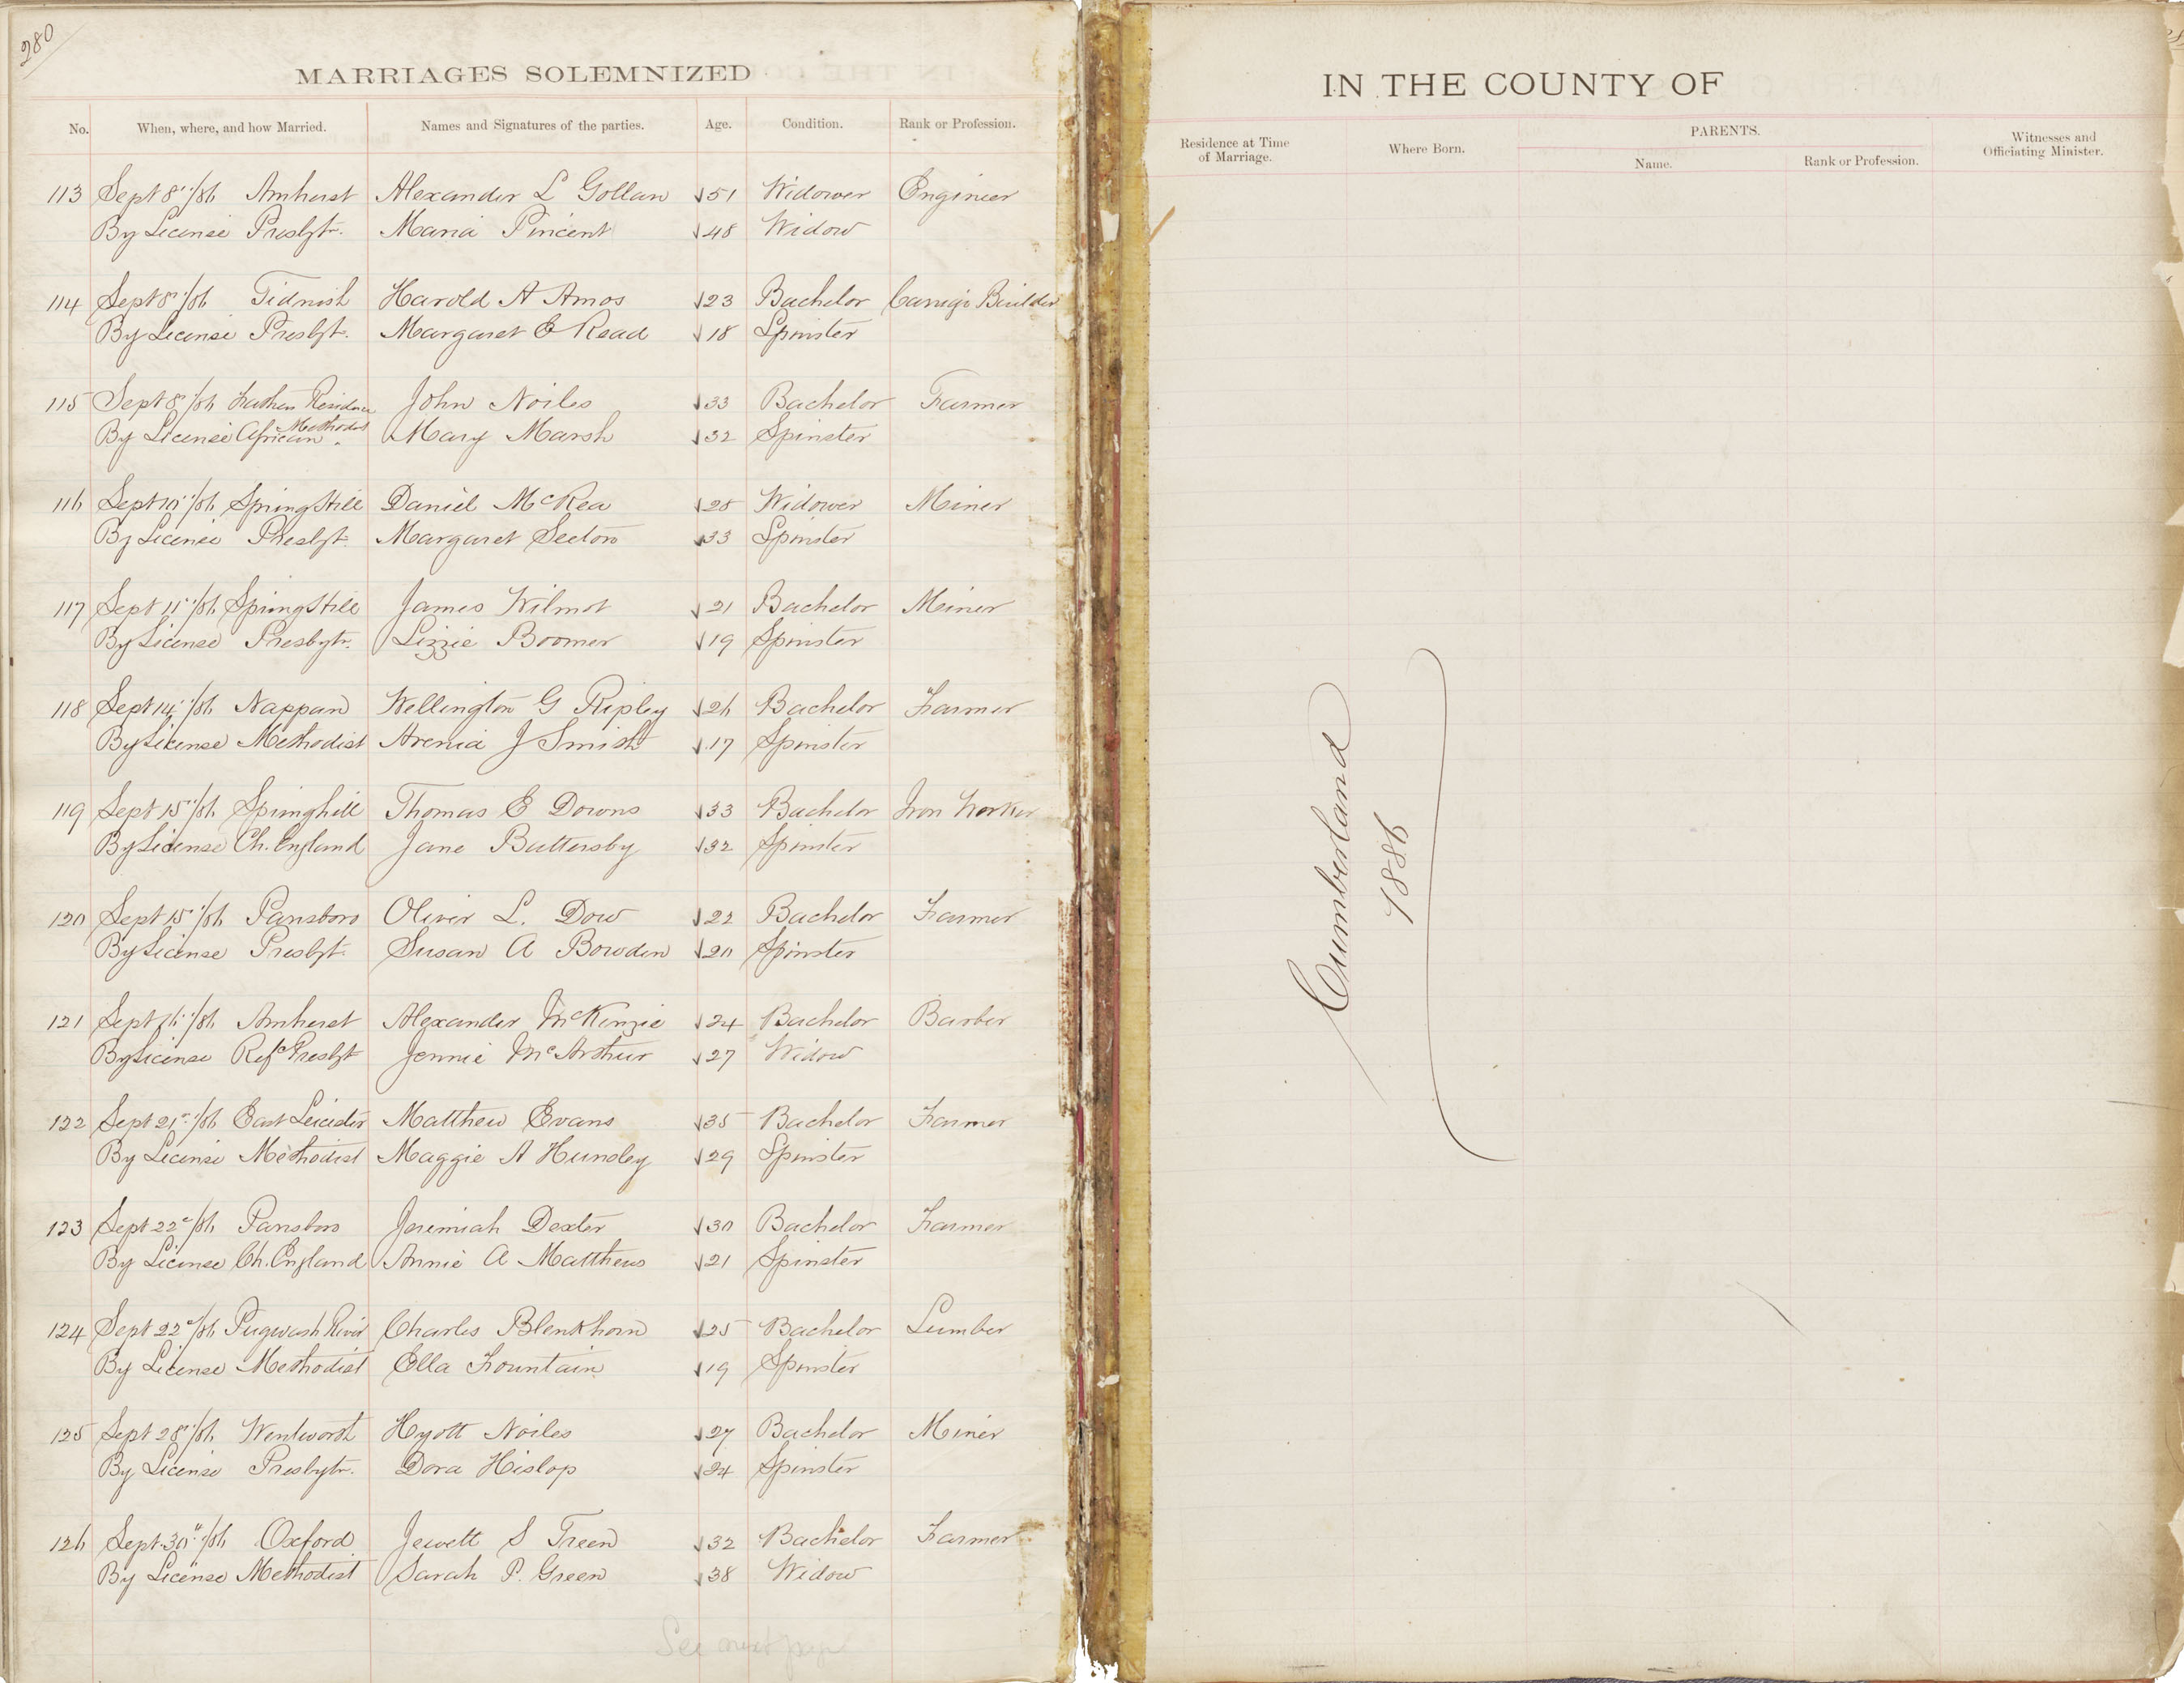 280
MARRIAGES SOLEMNIZED
No. When, where, and how Married. Names and Signatures of the parties. Age. Condition. Rank or Profession.
113 Sept 8"/86 Amherst Alexander L Gollan 51 Widower Engineer
By License Presbyt. Maria Pincent 48 Widow
114 Sept 8"/86 Tidnish Harold A Amos 23 Bachelor Carriage Builder
By License Presbyt. Margaret E Read 18 Spinster
115 Sept 8"/86 Fathers Residence John Noiles 33 Bachelor Farmer
By License African Methodist Mary Marsh 32 Spinster
116 Sept 10"/86 Spring Hill Daniel McRea 28 Widower Miner
By License Presbyt. Margaret Seeton 33 Spinster
117 Sept 11"/86 Spring Hill James Wilmot 21 Bachelor Miner
By License Presbytr. Lizzie Boomer 19 Spinster
118 Sept 14"/86 Nappan Wellington G Ripley 26 Bachelor Farmer
By License Methodist Arenia J Smith 17 Spinster
119 Sept 15"/86 Springhill Thomas E Downs 33 Bachelor Iron Worker
By License Ch. England Jane Battersby 32 Spinster
120 Sept 15"/86 Parrsboro Oliver L. Dow 22 Bachelor Farmer
By License Presbyt. Susan A Bowden 20 Spinster
121 Sept 16"/86 Amherst Alexander McKinzie 24 Bachelor Barber
By License Refd Presbyt Jennie McArthur 27 Widow
122 Sept 21"/86 East Leicester Matthew Evans 35 Bachelor Farmer
By License Methodist Maggie A Hunsley 29 Spinster
123 Sept 22"/86 Parrsboro Jeremiah Dexter 30 Bachelor Farmer
By License Ch. England Annie A Matthews 21 Spinster
124 Sept 22"/86 Pugwash River Charles Blenkhorn 25 Bachelor Lumber
By License Methodist Ella Fountain 19 Spinster
125 Sept 28"/86 Wentworth Hyott Noiles 27 Bachelor Miner
By License Presbytr. Dora Hislop 24 Spinster
126 Sept 30"/86 Oxford Jewett S Treen 32 Bachelor Farmer
By License Methodist Sarah P. Green 38 Widow
See next page
IN THE COUNTY OF
Residence at Time of Marriage. Where Born. PARENTS. Name. Rank or Profession. Witnesses and Officiating Minister.
Cumberland
1886